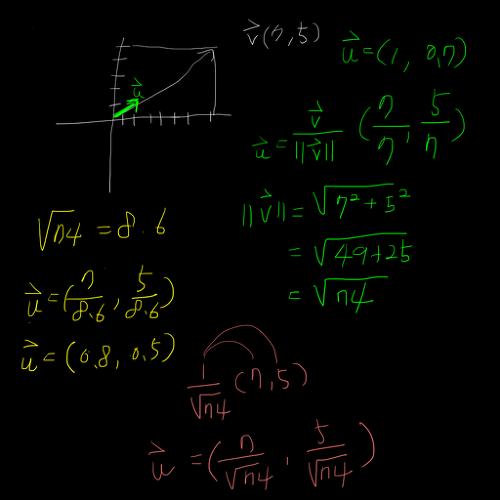 v⃗(7,5)
u⃗=(1, 0.7)
u⃗
u⃗ = v⃗/||v⃗|| (7/7, 5/7)
||v⃗|| = √7²+5²
= √49+25
= √74
√74 = 8.6
u⃗=(7/8.6, 5/8.6)
u⃗=(0.8, 0.5)
1/√74 (7,5)
u⃗ = (7/√74, 5/√74)